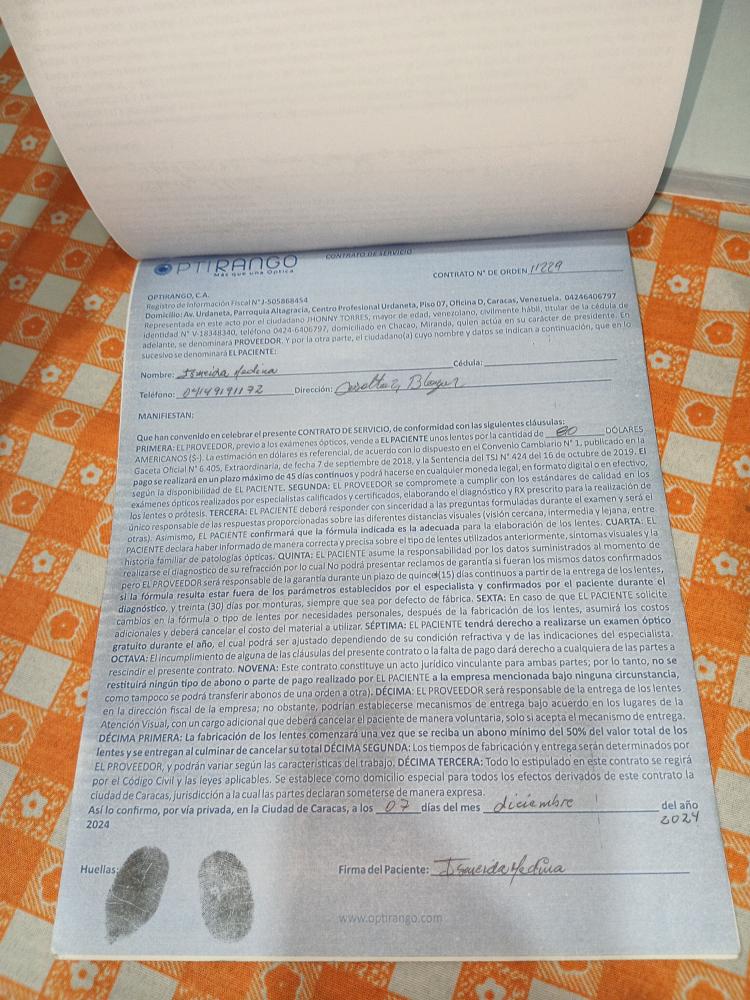 OPTIRANGO
Más que una Óptica
CONTRATO DE SERVICIO
CONTRATO N° DE ORDEN 11229
OPTIRANGO, C.A.
Registro de Información Fiscal N° J-505868454
Domicilio: Av. Urdaneta, Parroquia Altagracia, Centro Profesional Urdaneta, Piso 07, Oficina D, Caracas, Venezuela. 04246406797
Representada en este acto por el ciudadano JHONNY TORRES, mayor de edad, venezolano, civilmente hábil, titular de la cédula de
identidad N° V-18348340, teléfono 0424-6406797, domiciliado en Chacao, Miranda, quien actúa en su carácter de presidente. En
adelante, se denominará PROVEEDOR. Y por la otra parte, el ciudadano(a) cuyo nombre y datos se indican a continuación, que en lo
sucesivo se denominará EL PACIENTE:
Nombre: Ismeida Medina Cédula:
Teléfono: 04149191172 Dirección:
MANIFIESTAN:
Que han convenido en celebrar el presente CONTRATO DE SERVICIO, de conformidad con las siguientes cláusulas:
PRIMERA: EL PROVEEDOR, previo a los exámenes ópticos, vende a EL PACIENTE unos lentes por la cantidad de 80 DÓLARES
AMERICANOS ($-). La estimación en dólares es referencial, de acuerdo con lo dispuesto en el Convenio Cambiario N° 1, publicado en la
Gaceta Oficial N° 6.405, Extraordinaria, de fecha 7 de septiembre de 2018, y la Sentencia del TSJ N° 424 del 16 de octubre de 2019. El
pago se realizará en un plazo máximo de 45 días continuos y podrá hacerse en cualquier moneda legal, en formato digital o en efectivo,
según la disponibilidad de EL PACIENTE. SEGUNDA: EL PROVEEDOR se compromete a cumplir con los estándares de calidad en los
exámenes ópticos realizados por especialistas calificados y certificados, elaborando el diagnóstico y RX prescrito para la realización de
los lentes o prótesis. TERCERA: EL PACIENTE deberá responder con sinceridad a las preguntas formuladas durante el examen y será el
único responsable de las respuestas proporcionadas sobre las diferentes distancias visuales (visión cercana, intermedia y lejana, entre
otras). Asimismo, EL PACIENTE confirmará que la fórmula indicada es la adecuada para la elaboración de los lentes. CUARTA: EL
PACIENTE declara haber informado de manera correcta y precisa sobre el tipo de lentes utilizados anteriormente, síntomas visuales y la
historia familiar de patologías ópticas. QUINTA: EL PACIENTE asume la responsabilidad por los datos suministrados al momento de
realizarse el diagnostico de su refracción por lo cual No podrá presentar reclamos de garantía si fueran los mismos datos confirmados
pero EL PROVEEDOR será responsable de la garantía durante un plazo de quince(15) días continuos a partir de la entrega de los lentes,
si la fórmula resulta estar fuera de los parámetros establecidos por el especialista y confirmados por el paciente durante el
diagnóstico, y treinta (30) días por monturas, siempre que sea por defecto de fábrica. SEXTA: En caso de que EL PACIENTE solicite
cambios en la fórmula o tipo de lentes por necesidades personales, después de la fabricación de los lentes, asumirá los costos
adicionales y deberá cancelar el costo del material a utilizar. SÉPTIMA: EL PACIENTE tendrá derecho a realizarse un examen óptico
gratuito durante el año, el cual podrá ser ajustado dependiendo de su condición refractiva y de las indicaciones del especialista.
OCTAVA: El incumplimiento de alguna de las cláusulas del presente contrato o la falta de pago dará derecho a cualquiera de las partes a
rescindir el presente contrato. NOVENA: Este contrato constituye un acto jurídico vinculante para ambas partes; por lo tanto, no se
restituirá ningún tipo de abono o parte de pago realizado por EL PACIENTE a la empresa mencionada bajo ninguna circunstancia,
como tampoco se podrá transferir abonos de una orden a otra). DÉCIMA: EL PROVEEDOR será responsable de la entrega de los lentes
en la dirección fiscal de la empresa; no obstante, podrían establecerse mecanismos de entrega bajo acuerdo en los lugares de la
Atención Visual, con un cargo adicional que deberá cancelar el paciente de manera voluntaria, solo si acepta el mecanismo de entrega.
DÉCIMA PRIMERA: La fabricación de los lentes comenzará una vez que se reciba un abono mínimo del 50% del valor total de los
lentes y se entregan al culminar de cancelar su total DÉCIMA SEGUNDA: Los tiempos de fabricación y entrega serán determinados por
EL PROVEEDOR, y podrán variar según las características del trabajo. DÉCIMA TERCERA: Todo lo estipulado en este contrato se regirá
por el Código Civil y las leyes aplicables. Se establece como domicilio especial para todos los efectos derivados de este contrato la
ciudad de Caracas, jurisdicción a la cual las partes declaran someterse de manera expresa.
Así lo confirmo, por vía privada, en la Ciudad de Caracas, a los 07 días del mes diciembre del año
2024 2024
Huellas: Firma del Paciente: Ismeida Medina
www.optirango.com